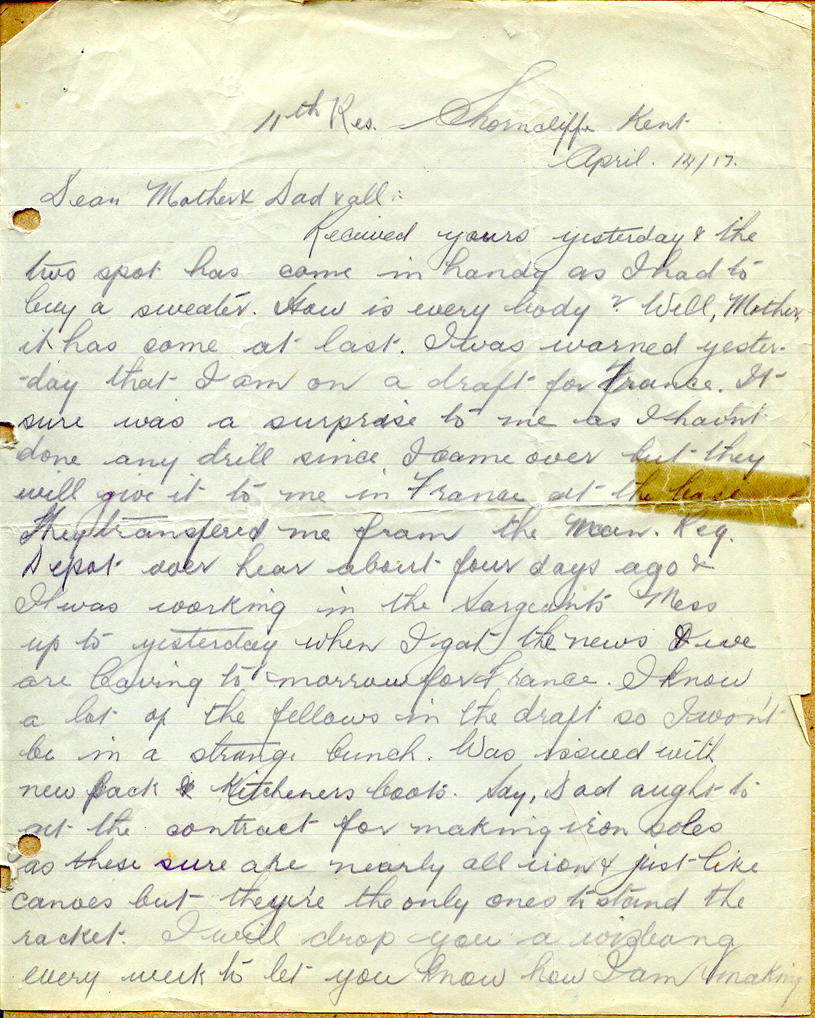 11th Res. Shorncliffe Kent
April. 14/17.
Dear Mother & Dad & all:
Received yours yesterday & the
two spot has come in handy as I had to
buy a sweater. How is every body? Well, Mother
it has come at last. I was warned yester-
-day that I am on a draft for France. It
sure was a surprise to me as I havn't
done any drill since I came over but they
will give it to me in France at the base
They transfered me from the Man. Reg.
Depot over hear about four days ago &
I was working in the Sargeants Mess
up to yesterday when I got the news & we
are leaving to-morrow for France. I know
a lot of the fellows in the draft so I won't
be in a strange bunch. Was issued with
new pack & Kitcheners boots. Say, Dad aught to
get the contract for making iron soles
as these sure are nearly all iron & just like
canoes but they're the only ones to stand the
racket. I will drop you a wizbang
every week to let you know how I am making